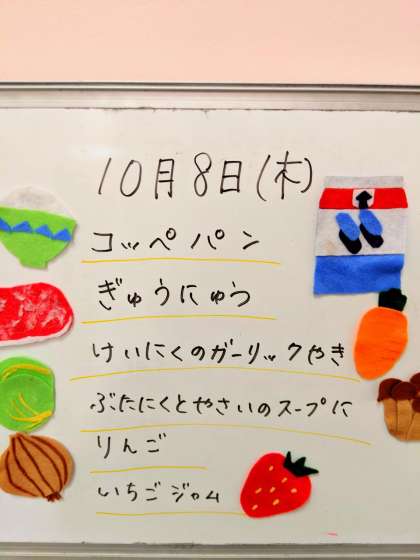 10月8日(木)
コッペパン
ぎゅうにゅう
けいにくのガーリックやき
ぶたにくとやさいのスープに
りんご
いちごジャム